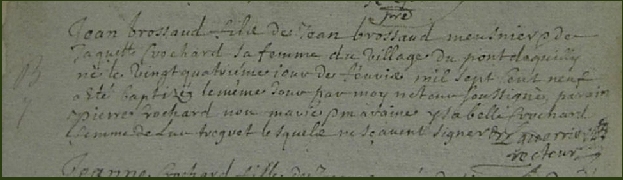 Jean brossaud fils de Jean brossaud meusnier & de
Jaquette Crochard sa femme du village du pont daquilly
né le vingt quatrieme jour de fevrier mil sept cent neuf
a été baptisé le meme jour par moy recteur soussigné, parain
pierre Crochard non marié maraine ysabelle Crochard
femme de Luc lesquels ne sçavent signer
guerrier
recteur
Jeanne Crochard fille de